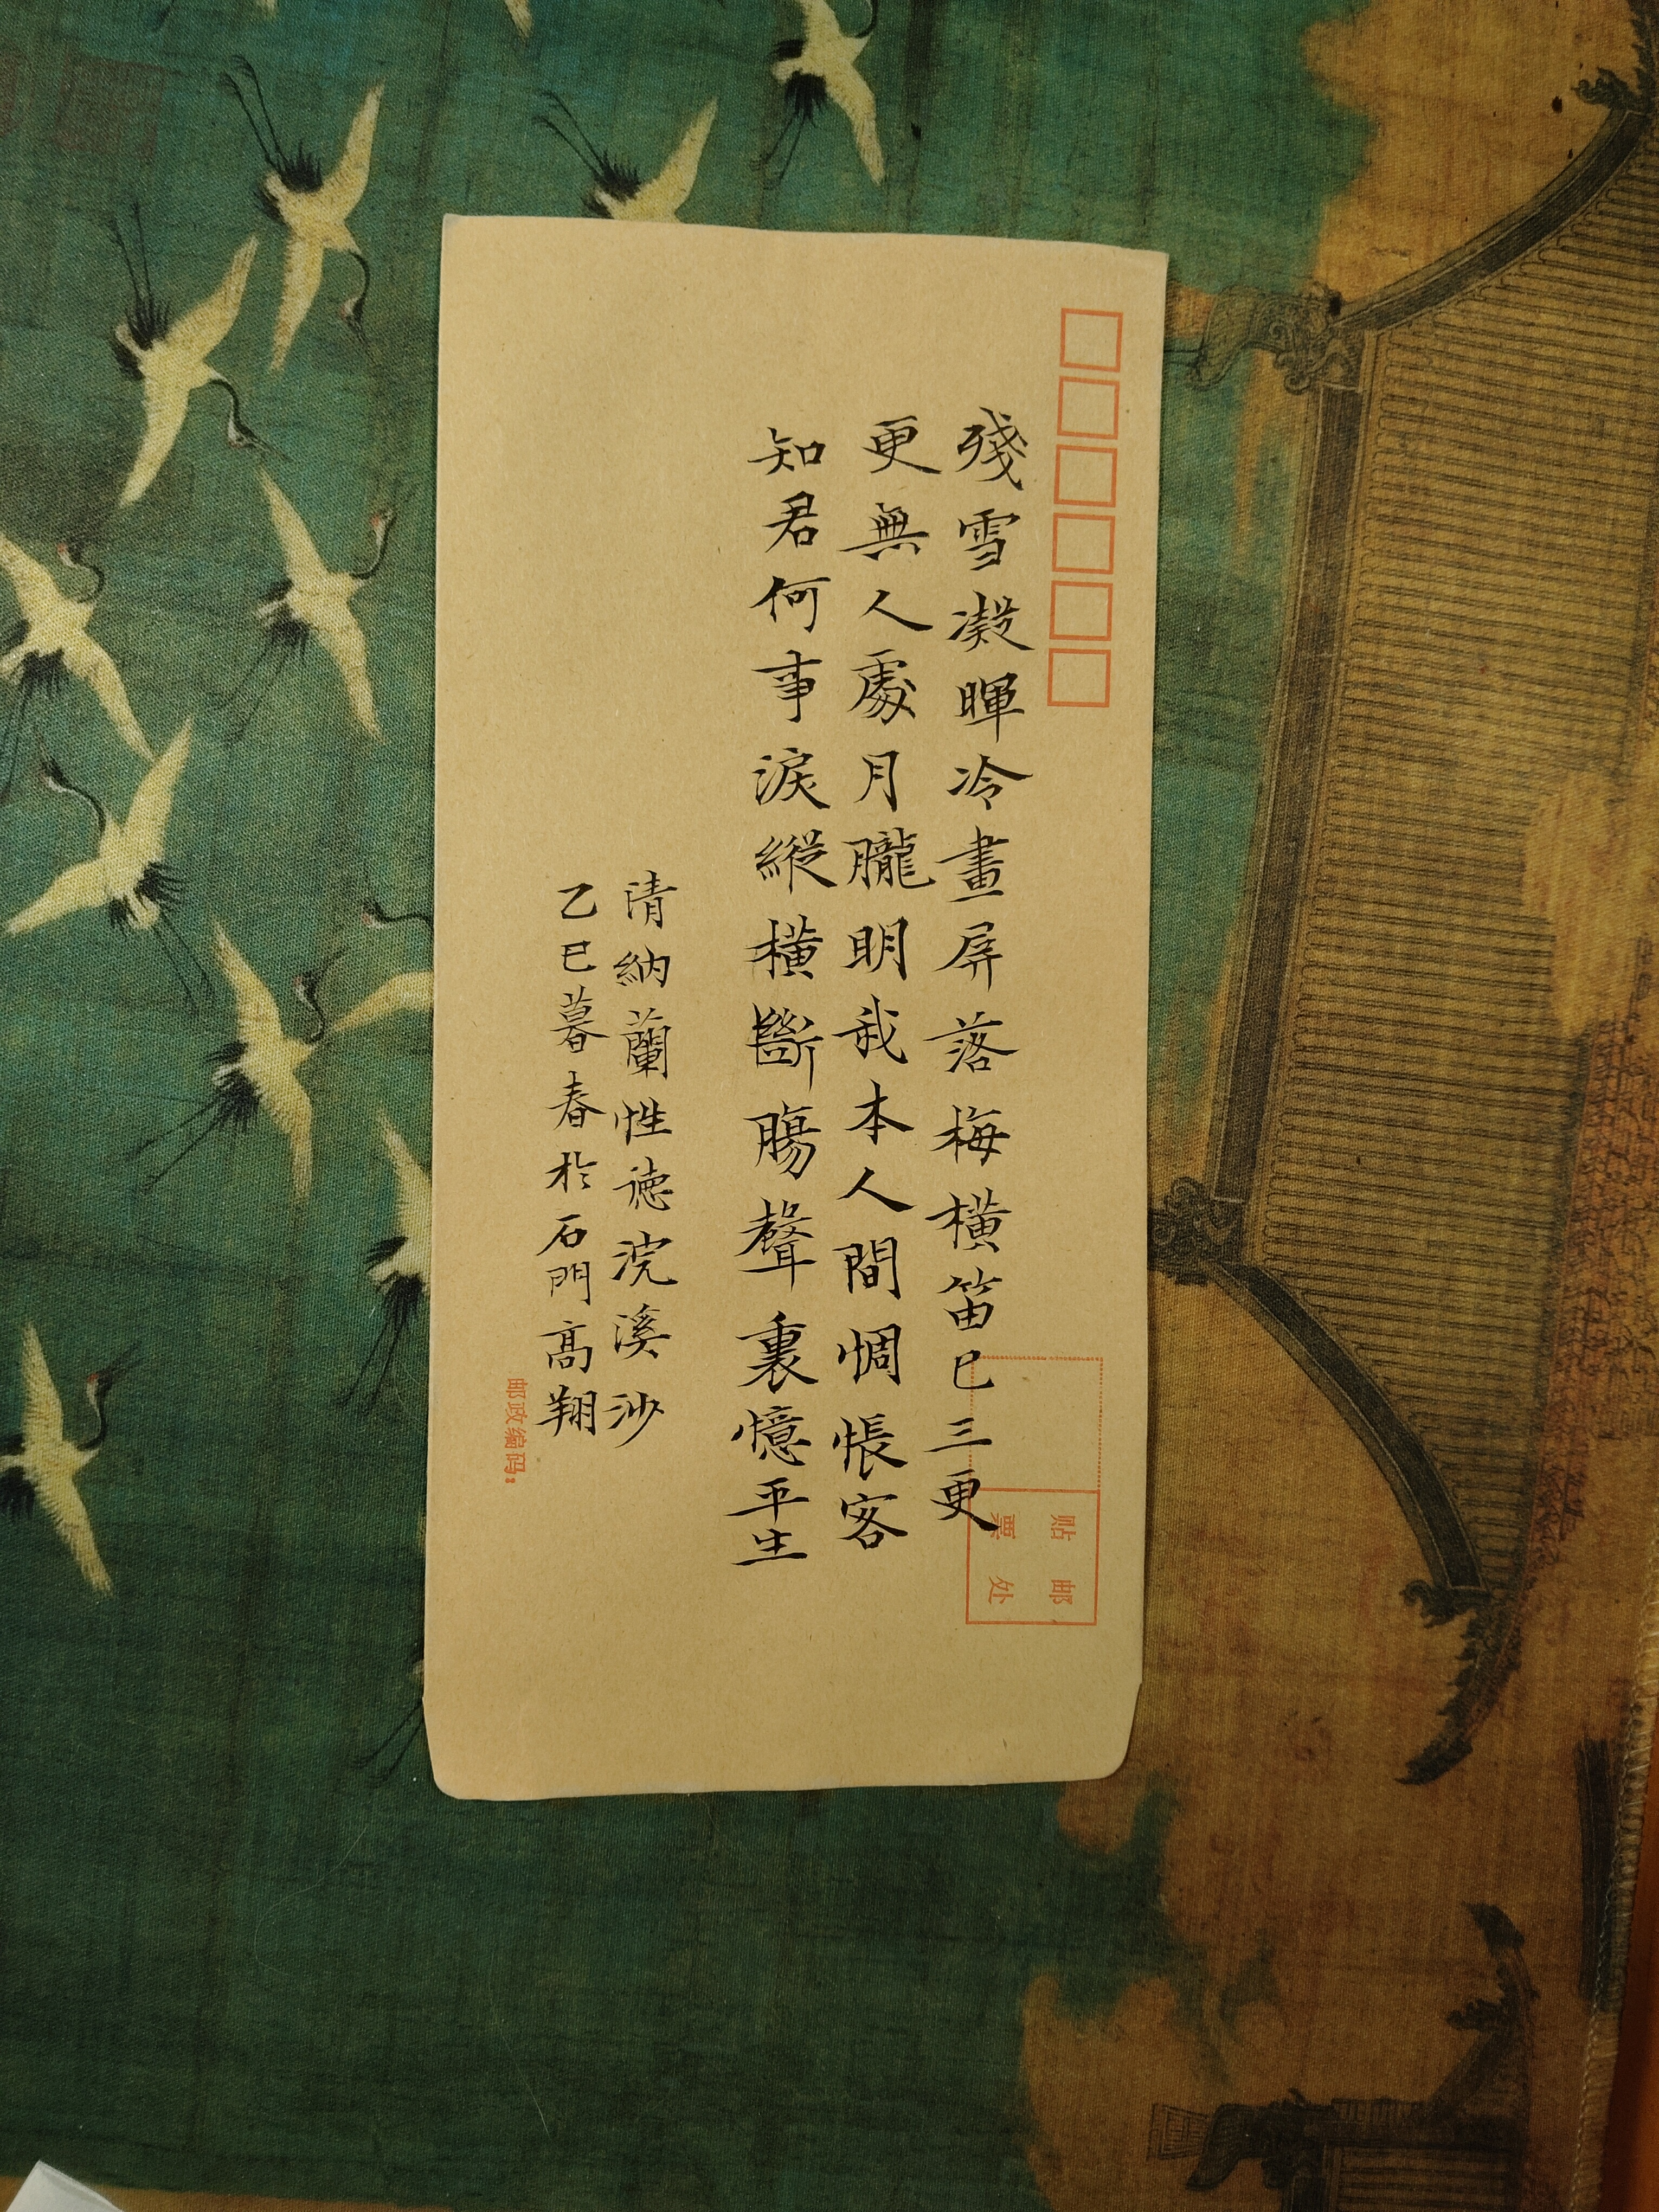 殘雪凝暉冷畫屏落梅横笛已三更
更無人處月朧明我本人間惆悵客
知君何事淚縱横斷腸聲裏憶平生
清納蘭性德浣溪沙
乙巳暮春於石門高翔
贴邮
票处
邮政编码: